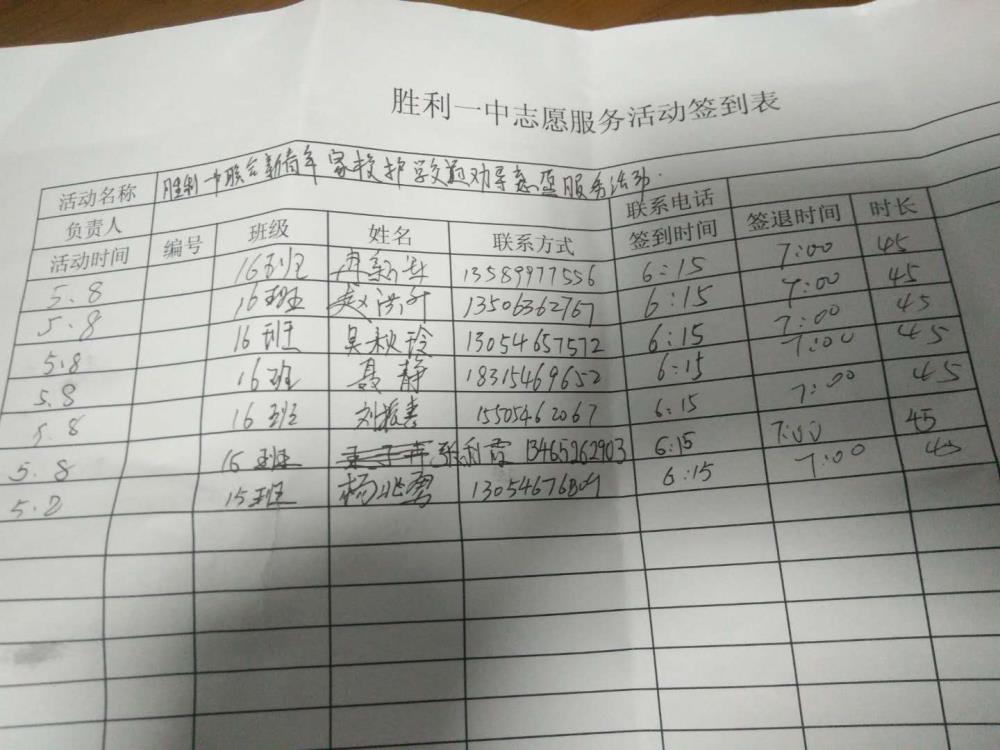 胜利一中志愿服务活动签到表
活动名称 胜利一中联合新青年家校护学交通劝导志愿服务活动.
负责人 联系电话
活动时间 编号 班级 姓名 联系方式 签到时间 签退时间 时长
5.8 16班 13589977556 6:15 7:00 45
5.8 16班 赵洪升 13506362767 6:15 7:00 45
5.8 16班 吴秋玲 13054657572 6:15 7:00 45
5.8 16班 聂静 18315469652 6:15 7:00 45
5.8 16班 刘振春 15505462067 6:15 7:00 45
5.8 15班 张利霞 13465262903 6:15 7:00 45
5.8 15班 杨兆勇 6:15 7:00 45